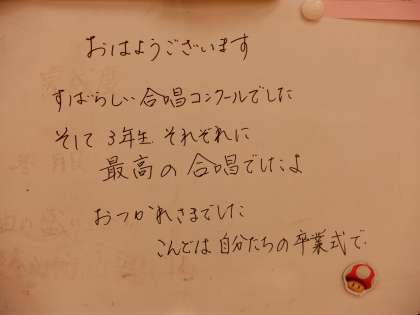 おはようございます
すばらしい合唱コンクールでした
そして 3年生 それぞれに
最高の合唱でしたよ
おつかれさまでした
こんどは自分たちの卒業式で